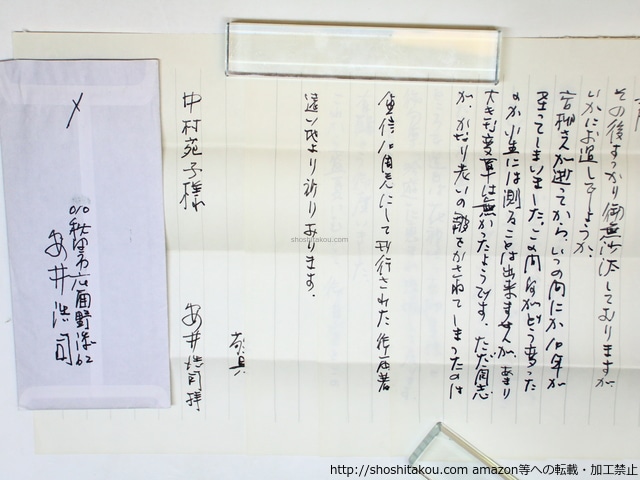 その後すっかり御無沙汰しておりますが
いかにお過しでしょうか。
高柳さんが逝ってから、いつの間にか10年が
経ってしまいました。この間何がどう変った
のか小生には測ることは出来ませんが、あまり
大きな変革は無かったようです。ただ同志
が、かなり老いの齢をかさねてしまったのは
にして刊行された
遠い地より祈りおります。
敬具
安井浩司拝
中村苑子様
〆
010秋田市広面野添62
安井浩司
shoshitakou.com
http://shoshitakou.com amazon等への転載・加工禁止